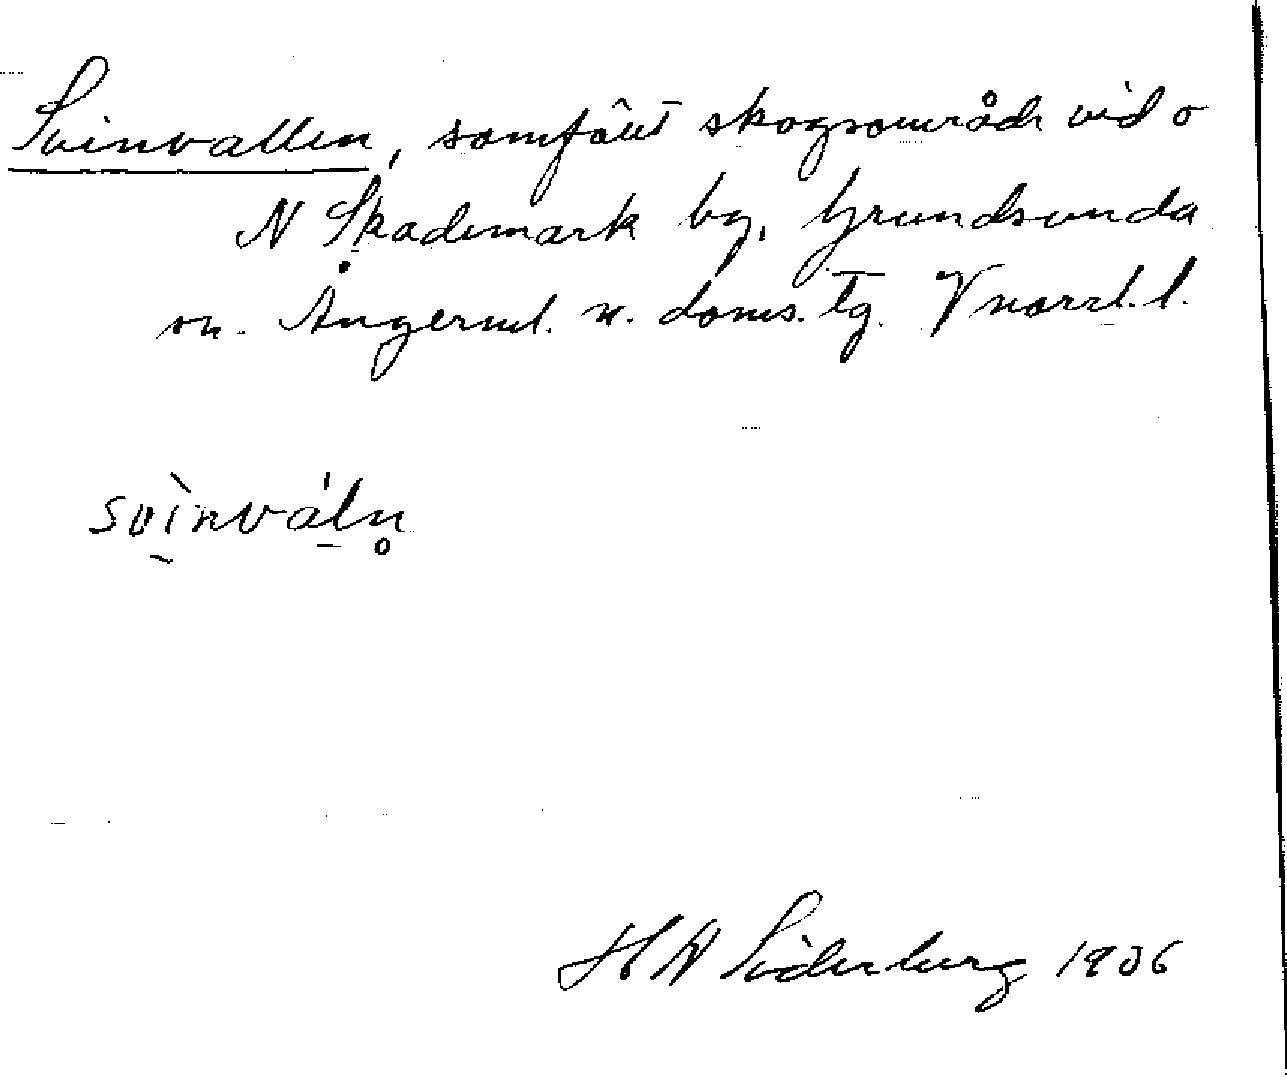 Svinvallen, samfällt skogsområde vid o
N Skademark by, Grundsunda
sn. Ångerml. n. doms. tg. Vnorrl. l.
svinvaln̥
H N Söderberg 1936